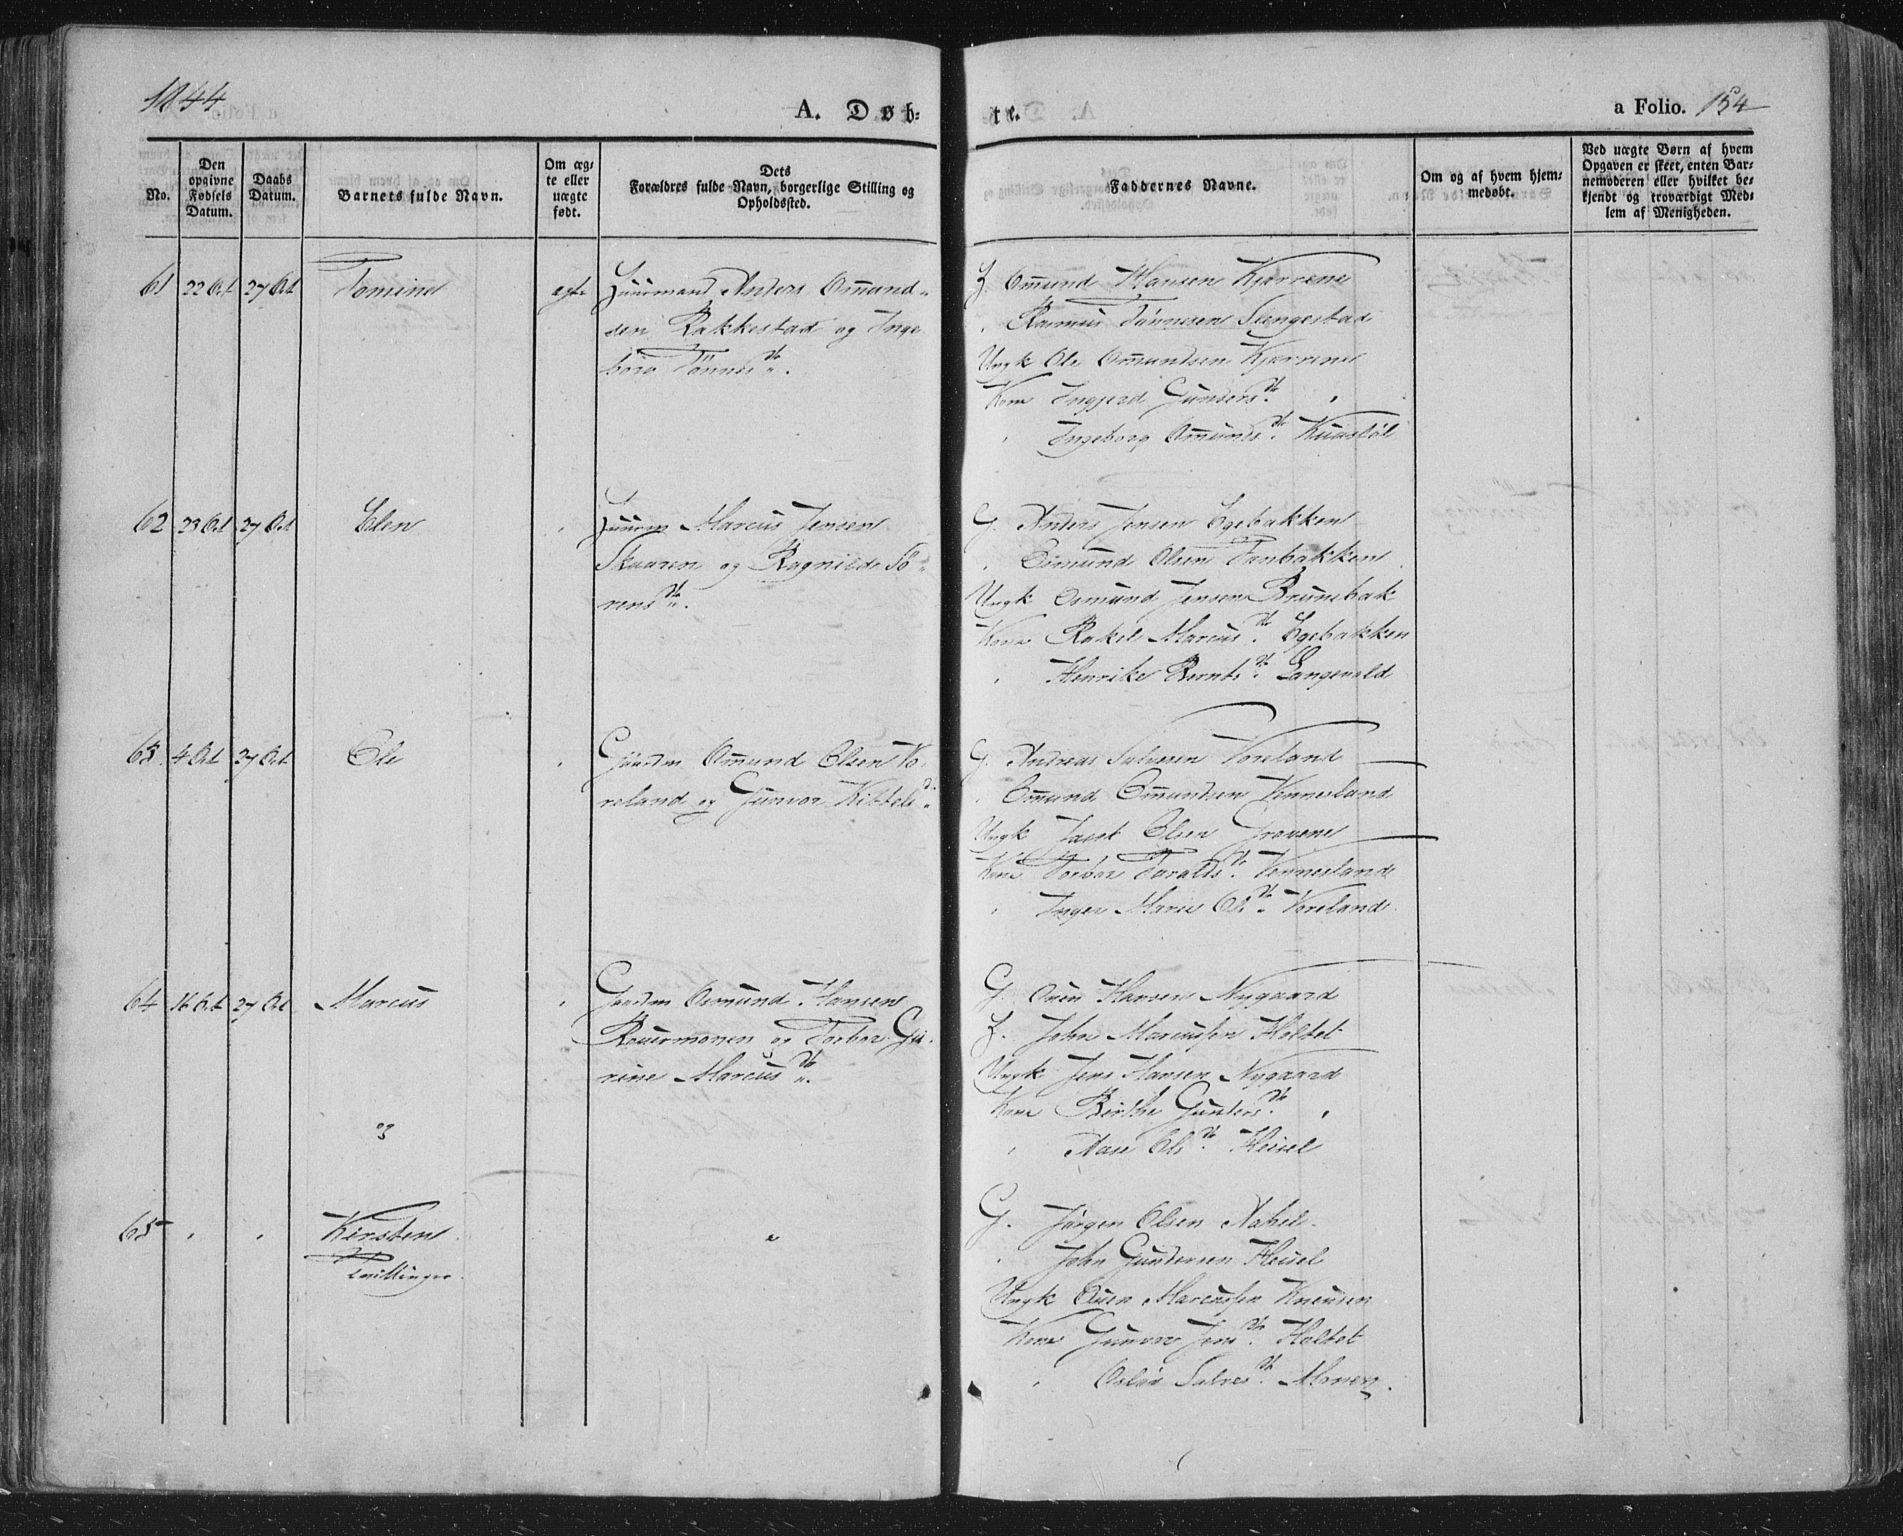 1844
A. Døb-
te.
a Folio. 154
No.
Den opgivne Fødsels Datum.
Daabs Datum.
Barnets fulde Navn.
Om ægte eller uægte født.
Dets
Forældres fulde Navn, borgerlige Stilling og
Opholdssted.
Faddernes Navne.
Om og af hvem hjem-
medøbt.
Ved uægte Børn af hvem
Opgaven er skeet, enten Bar-
nemoderen eller hvilket be-
kjendt og troværdigt Med-
lem af Menigheden.
61 22 Oct 27 Oct Tomine ægte Huusmand Anders Omund-
sen Rakkestad og Inge
borg Tönnes Dr.
H. Omund Hansen Kjærrene
Rasmus Tönnesen
Ungk Ole Omundsen Kjærrene
Kone Ingjerd Gunders Dr. "
" Ingeborg Omunds Dr.
62 23 Oct 27 Oct Elen " Huusm Marcus Jensen
Skaaren og Ragnilde Tö-
rens Dr.
G. Anders Jensen Egebakken
" Osmund Olsen
Ungk Osmund Jensen Brunsbak
Kone Rakel Marcus Dr. Egebakken
" Henrike Bernts Dr. Langevold
63 4 Oct 27 Oct Ole " Gaardm Omund Olsen Vo-
reland og Gunvor Kittels D.
G. Andreas Salvesen Voreland
" Omund Omundsen Vennesland
Ungk Jacob Olsen Grovene
Kone Torbor Taralds Dr. Vennesland
" Inger Marie Ols Dr. Voreland
64 16 Oct 27 Oct Marcus " Gaardm Osmund Hansen
og Torbor Gu-
rine Marcus Dr.
G. Ouen Hansen Nygaard
H. John Marcussen Holtet
Ungk Jens Hansen Nygaard
Kone Birthe Gunders Dr. "
" Aase Ols Dr. Heisel
og
65 " " Kirsten
Tvillinger
"
G. Jörgen Olsen
" John Gundersen Heisel
Ungk Ouen Marcussen
Kone Gunvor Jens Dr. Holtet
" Salves Dr. Monen